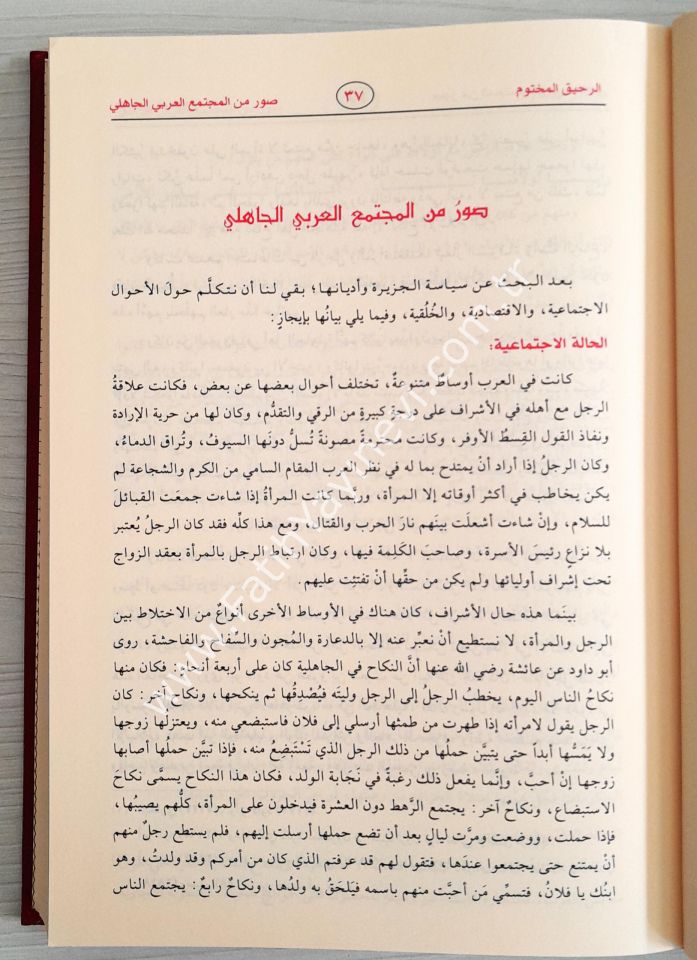 الرحيق المختوم
٣٧
صور من المجتمع العربي الجاهلي
صورُ من المجتمع العربي الجاهلي
بعد البحث عن سياسة الجزيرة وأديانها؛ بقي لنا أن نتكلَّم حولَ الأحوال
الاجتماعية، والاقتصادية، والخُلُقية، وفيما يلي بيانُها بإيجازٍ:
الحالة الاجتماعية:
كانت في العرب أوساطٌ متنوعةٌ، تختلف أحوال بعضها عن بعض، فكانت علاقةُ
الرجل مع أهله في الأشراف على درجةٍ كبيرةٍ من الرقي والتقدُّم، وكان لها من حرية الإرادة
ونفاذ القول القِسطُ الأوفر، وكانت محترمةً مصونةً تُسلُّ دونَها السيوفُ، وتُراق الدماءُ،
وكان الرجلُ إذا أراد أنْ يمتدح بما له في نظر العرب المقام السامي من الكرم والشجاعة لم
يكن يخاطب في أكثر أوقاته إلا المرأة، وربَّما كانت المرأةُ إذا شاءت جمعَت القبائلَ
للسلام، وإنْ شاءت أشعلَت بينَهم نارَ الحرب والقتال، ومع هذا كلِّه فقد كان الرجلُ يُعتبر
بلا نزاعٍ رئيسَ الأسرة، وصاحبَ الكَلِمة فيها، وكان ارتباط الرجل بالمرأة بعقد الزواج
تحت إشراف أوليائها ولم يكن من حقِّها أنْ تفتئِت عليهم.
بينَما هذه حال الأشراف، كان هناك في الأوساط الأخرى أنواعٌ من الاختلاط بين
الرجل والمرأة، لا نستطيع أنْ نعبِّر عنه إلا بالدعارة والمُجون والسِّفاح والفاحشة، روى
أبو داود عن عائشة رضي الله عنها أنَّ النكاح في الجاهلية كان على أربعة أنحاءٍ: فكان منها
نكاحُ الناس اليوم، يخطبُ الرجلُ إلى الرجل وليته فيُصْدِقُها ثم ينكحها، ونكاح آخر: كان
الرجل يقول لامرأته إذا طهرت من طمثها أرسلي إلى فلان فاستبضعي منه، ويعتزلُها زوجها
ولا يَمَسُّها أبداً حتى يتبيَّن حملُها من ذلك الرجل الذي تَسْتَبْضِعُ منه، فإذا تبيَّن حملُها أصابها
زوجها إنْ أحبَّ، وإنَّما يفعل ذلك رغبةً في نَجَابة الولد، فكان هذا النكاح يسمَّى نكاحَ
الاستبضاع، ونكاحٌ آخر: يجتمع الرَّهط دون العشرة فيدخلون على المرأة، كلُّهم يصيبُها،
فإذا حملت، ووضعت ومرَّت ليالٍ بعد أن تضع حملها أرسلت إليهم، فلم يستطع رجلٌ منهم
أنْ يمتنع حتى يجتمعوا عندَها، فتقول لهم قد عرفتم الذي كان من أمركم وقد ولدتُ، وهو
ابنُك يا فلانُ، فتسمِّي مَن أحبَّت منهم باسمه فيَلحَقُ به ولدُها، ونكاحٌ رابعٌ: يجتمع الناس
www.Fatihyayinevi.com.tr